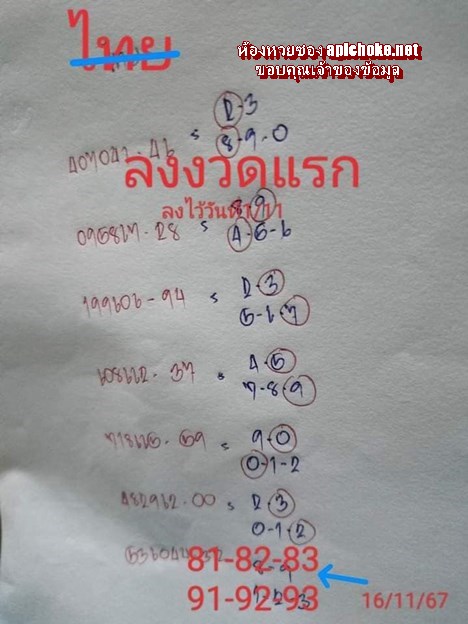 ไทย
ห้องหวยซอง apichoke.net
ขอบคุณเจ้าของข้อมูล
2-3
407041-46 = 8-9-0
ลงงวดแรก
8-9
095867-28 = 4-5-6
2-3
199606-94 = 5-6-7
4-5
108112-37 = 7-8-9
9-0
= 0-1-2
482962-00 = 2-3
0-1-2
81-82-83
91-92-93
16/11/67